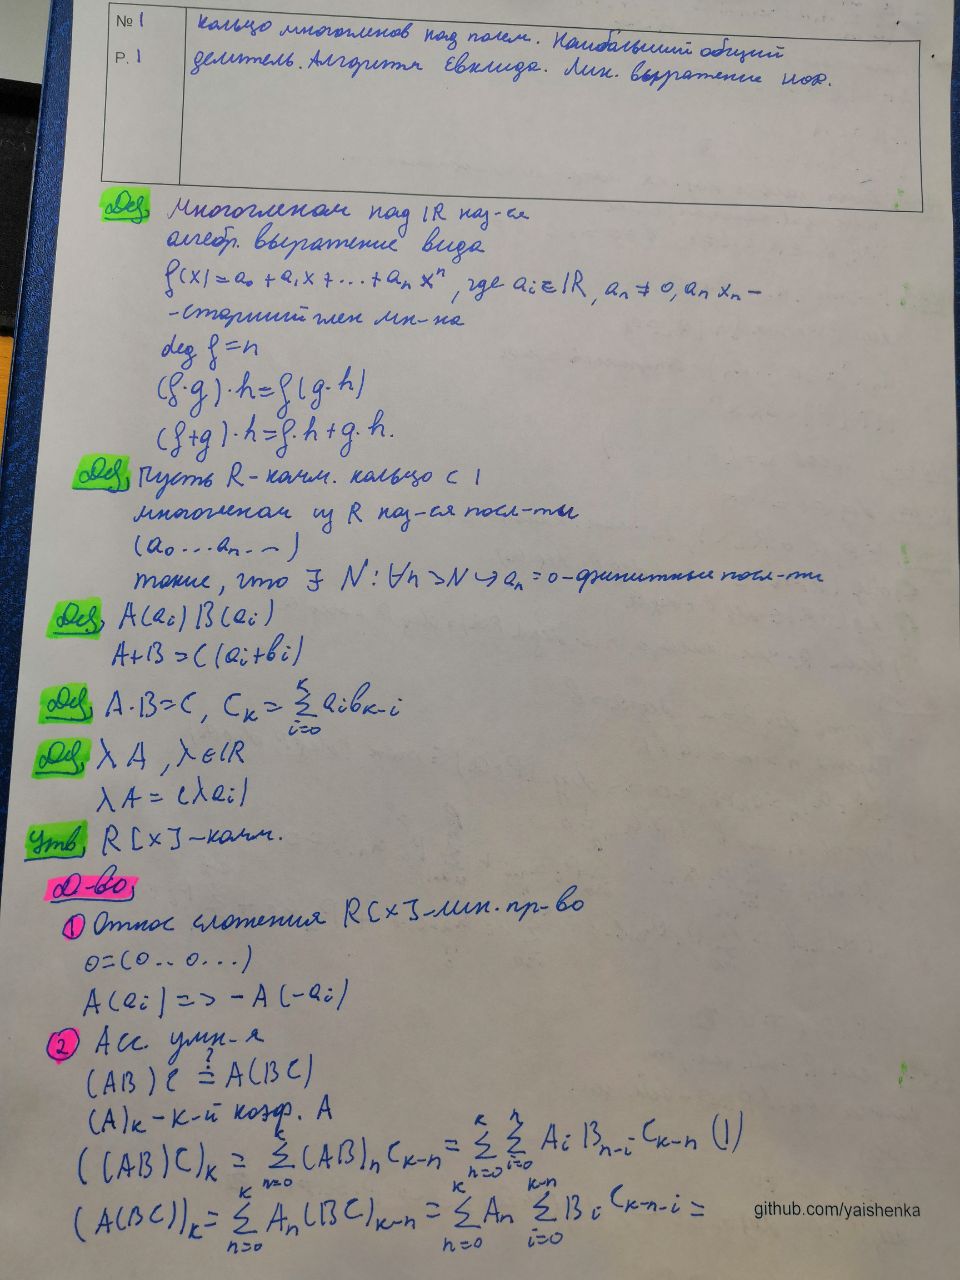 № 1
Р. 1
Кольцо многочленов над полем. Наибольший общий
делитель. Алгоритм Евклида. Лин. выражение нод.
Def. Многочленом над ℝ наз-ся
алгебр. выражение вида
f(x)=a₀+a₁x+...+aₙxⁿ, где aᵢ∈ℝ, aₙ≠0, aₙxₙ–
-старший член мн-на
deg f=n
(f·g)·h=f(g·h)
(f+g)·h=f·h+g·h.
Def. Пусть R-комм. кольцо с 1
многочленом из R наз-ся посл-ты
(a₀...aₙ...)
такие, что ∃ N: ∀n>N↪aₙ=0-финитные посл-ти
Def. A(aᵢ) B(aᵢ)
A+B=C(aᵢ+bᵢ)
Def. A·B=C, Cₖ=∑ᵢ₌₀ᵏ aᵢbₖ₋ᵢ
Def. λA, λ∈ℝ
λA=(λaᵢ)
Утв. R[x]-комм.
Д-во.
1 Относ сложения R[x]-лин. пр-во
0=(0..0...)
A(aᵢ)=>-A(-aᵢ)
2 Асс. умн-я
(AB)C ≟ A(BC)
(A)ₖ-к-й коэф. A
((AB)C)ₖ = ∑ₙ₌₀ᵏ (AB)ₙCₖ₋ₙ = ∑ₙ₌₀ᵏ ∑ᵢ₌₀ⁿ AᵢBₙ₋ᵢCₖ₋ₙ (1)
(A(BC))ₖ = ∑ₙ₌₀ᵏ Aₙ(BC)ₖ₋ₙ = ∑ₙ₌₀ᵏ Aₙ ∑ᵢ₌₀ᵏ⁻ⁿ BᵢCₖ₋ₙ₋ᵢ =
github.com/yaishenka